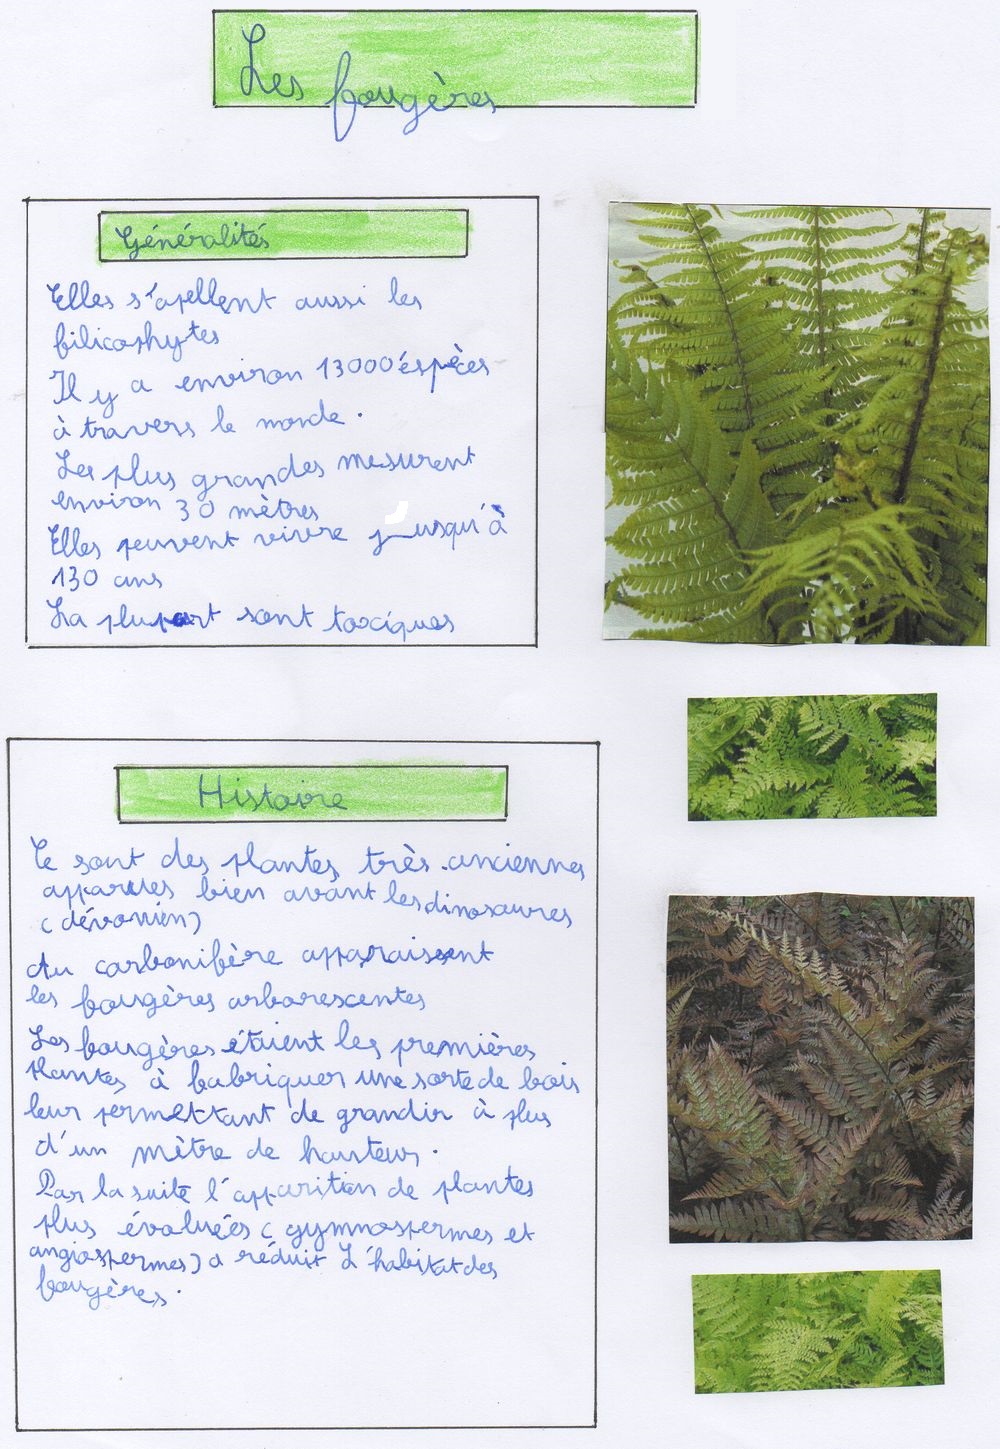 Les fougères
Généralités
Elles s'apellent aussi les
filicophytes
Il y a environ 13000 éspèces
à travers le monde.
Les plus grandes mesurent
environ 30 mètres
Elles peuvent vivre jusqu'à
130 ans
La plupart sont toxiques
Histoire
Ce sont des plantes très anciennes
apparues bien avant les dinosaures
(dévonien)
Au carbonifère apparaissent
les fougères arborescentes
Les fougères étaient les premières
plantes à fabriquer une sorte de bois
leur permettant de grandir à plus
d'un mètre de hauteur.
Par la suite l'apparition de plantes
plus évoluées (gymnospermes et
angiospermes) a réduit L'habitat des
fougères.